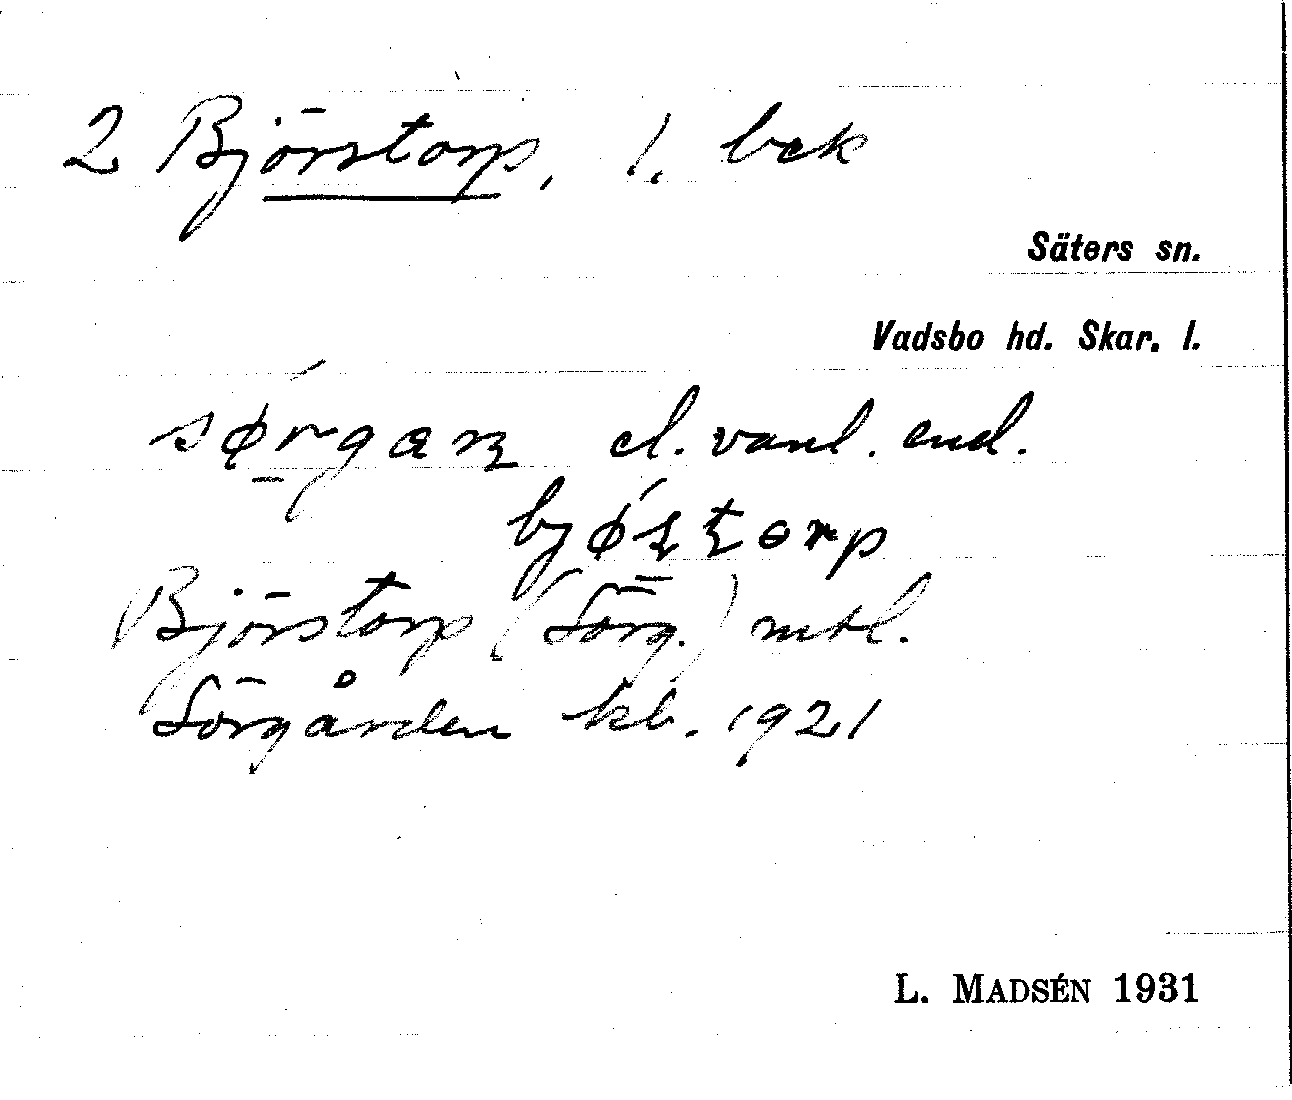 2 Björstorp, 1. bek
Säters sn.
Vadsbo hd. Skar. l.
sǿ̱rgan el. vanl. end.
bjǿstorp
Björstorp (Sörg.) mtl.
Sörgården kb. 1921
L. MADSÉN 1931